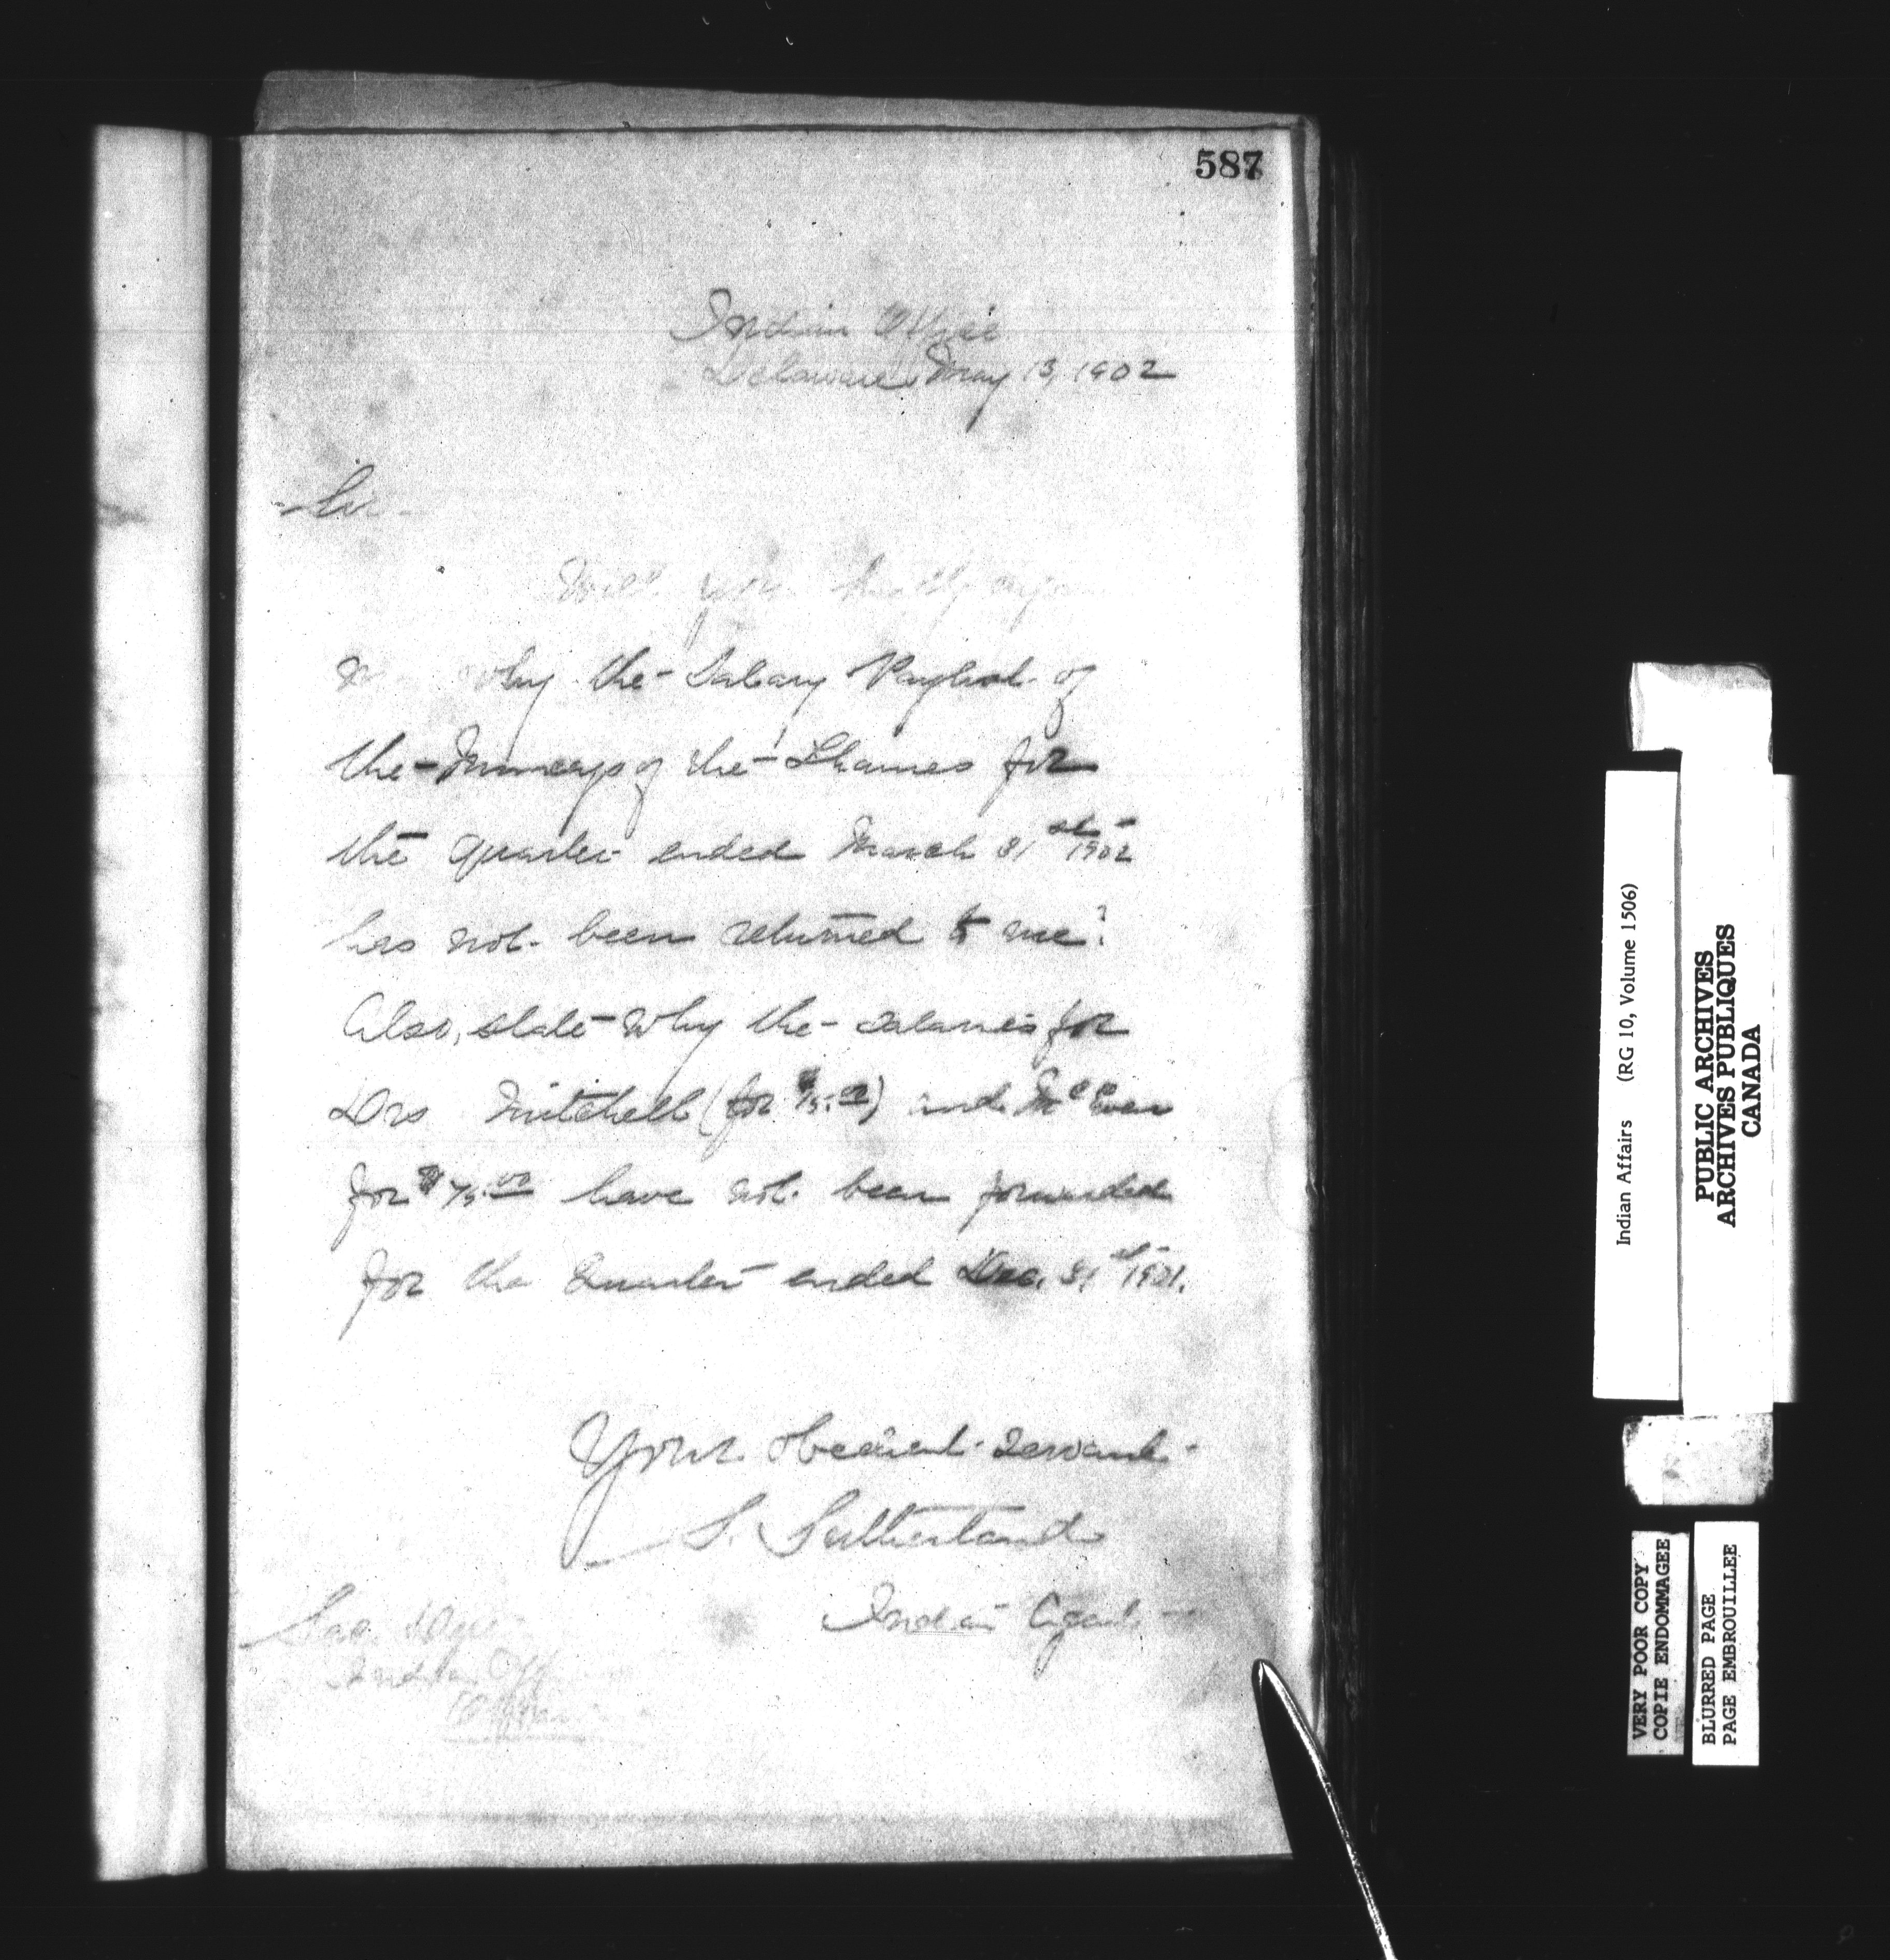 587
Indian Office
Delaware May 13, 1902
Sir
Will you kindly
why the Salary Paylist of
the Munceys of the Thames for
the quarter ended March 31st 1902
has not been returned to me?
Also, state why the salaries for
Drs Mitchell (for $75.00) and McEwen
for $75.00 have not been forwarded
for the Quarter ended Dec. 31st 1901.
Your Obedient Servant
S. Sutherland
Indian Agent
Indian Off
Indian Affairs (RG 10, Volume 1506)
PUBLIC ARCHIVES
ARCHIVES PUBLIQUES
CANADA
VERY POOR COPY
COPIE ENDOMMAGEE
BLURRED PAGE
PAGE EMBROUILLEE